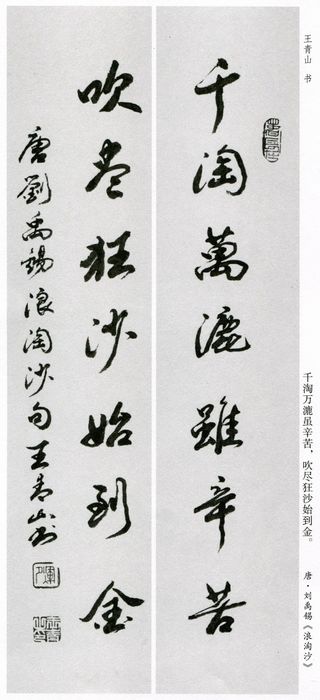 王青山 书
千淘万漉虽辛苦，吹尽狂沙始到金。
唐·刘禹锡《浪淘沙》
千淘萬漉雖辛苦
吹尽狂沙始到金
唐劉禹錫浪淘沙句王青山书